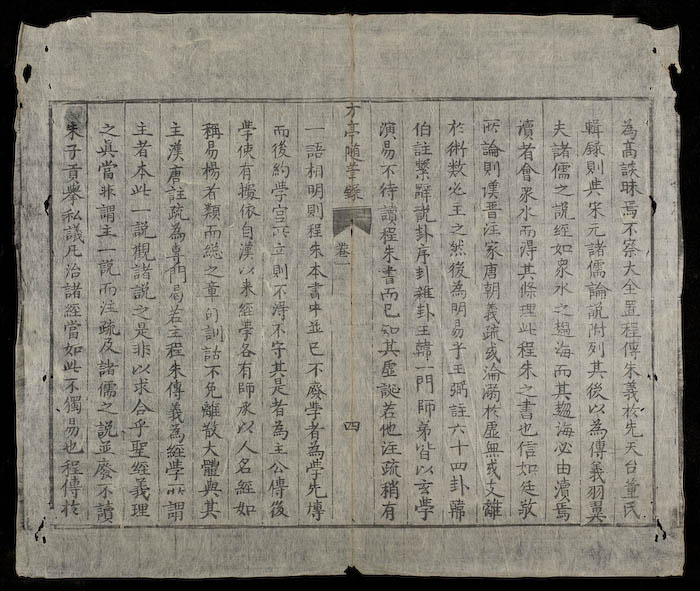 為高談昧焉不察大全置程傳朱義於先天台董氏
輯錄則典宋元諸儒論說附列其後以為傳義羽翼
夫諸儒之說經如衆水之趨海而其趨海必由瀆焉
瀆者會衆水而得其條理此程朱之書也信如廷敬
所論則漢晉注家唐朝義疏或淪溺於虛無或支離
於術數必主之然後為明易乎王弼註六十四卦韓
伯註繫辭說卦序卦雜卦王韓一門師弟皆以玄學
演易不待讀程朱書而已知其虛誕若他注疏稍有
方亭隨筆錄 卷一 四
一語相明則程朱本書中並已不廢學者為學先博
而後約學宮所立則不得不守其是者為主公傳後
學使有據依自漢以來經學各有師承以人名經如
稱易楊者類而總之章句訓詁不免離散大體與其
主漢唐註疏為專門曷若主程朱傳義為經學所謂
主者本此一說觀諸說之是非以求合乎聖經義理
之真當非謂主一說而注疏及諸儒之說並廢不讀
朱子貢舉私議凡治諸經當如此不獨易也程傳於